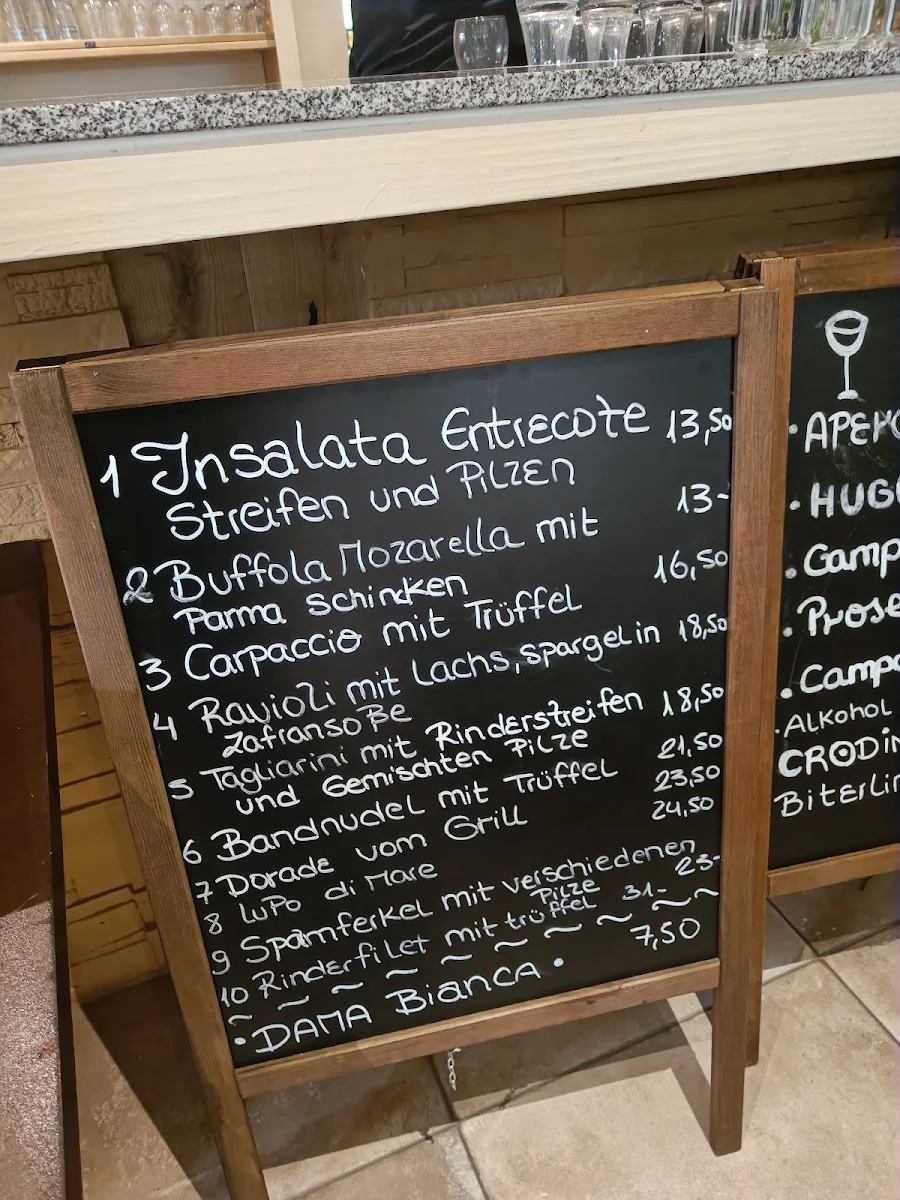 1 Insalata Entrecote 13,50
Streifen und Pilzen
2 Buffola Mozarella mit 13-
Parma Schinken
3 Carpaccio mit Trüffel 16,50
4 Ravioli mit Lachs, spargel in 18,50
Zafransoße
5 Tagliarini mit Rinderstreifen 18,50
und Gemischten Pilze
6 Bandnudel mit Trüffel 21,50
7 Dorade vom Grill 23,50
8 LuPo di Mare 24,50
9 Spamferkel mit verschiedenen
Pilze 23-
10 Rinderfilet mit trüffel 31-
• DAMA Bianca • 7,50
• HUG
• Camp
• Prose
• Campa
• Alkohol
CRODIN
Biterlin